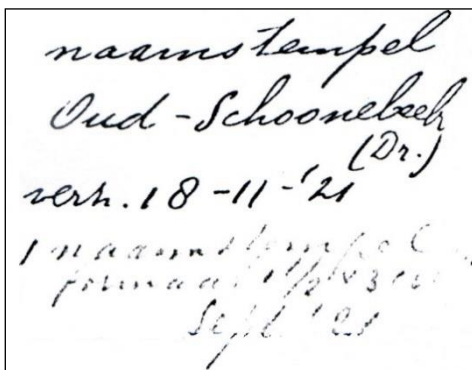 naamstempel
Oud-Schoonebeek
(Dr.)
verh. 18-11-'21
1 naamstempel
formaat
Sept. '21